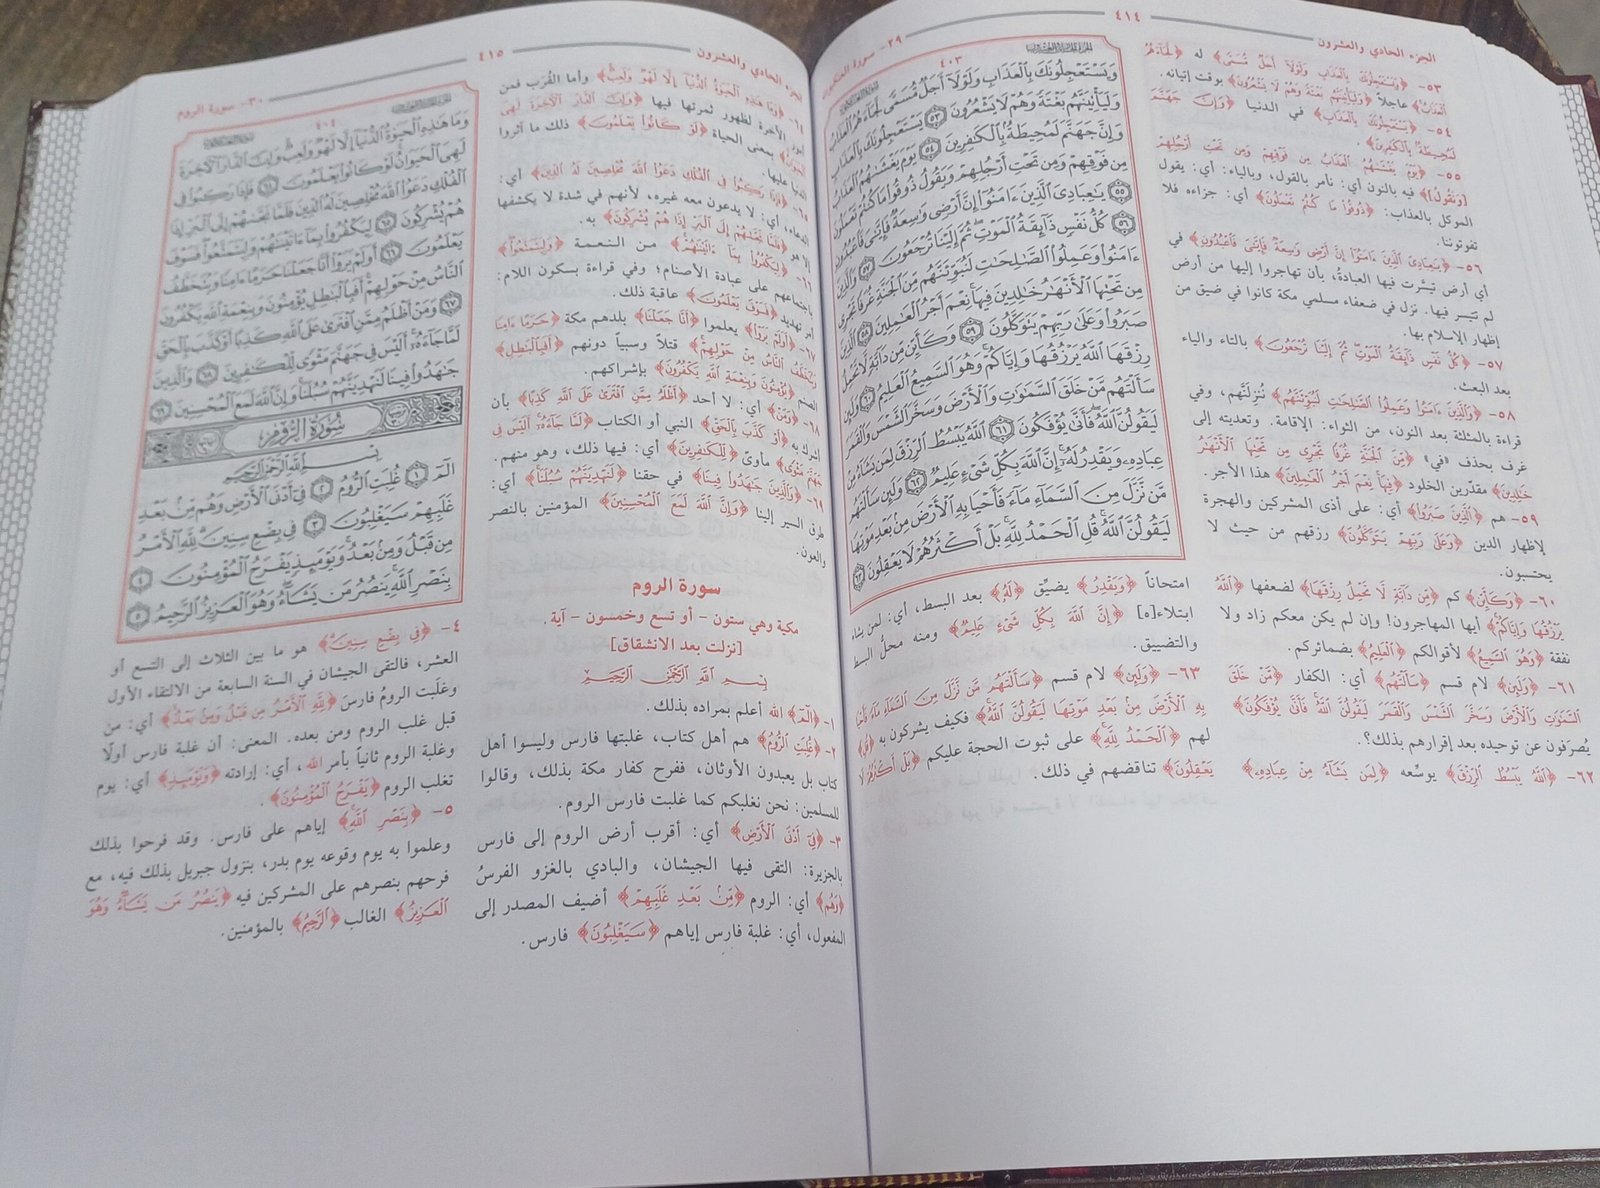 الجزء الحادي والعشرون
٤١٤
٢٩- سورة العنكبوت
٥٣- ﴿وَيَسْتَعْجِلُونَكَ بِالْعَذَابِ وَلَوْلَا أَجَلٌ مُسَمًّى﴾ له ﴿لَجَاءَهُمُ
الْعَذَابُ﴾ عاجلاً ﴿وَلَيَأْتِيَنَّهُمْ بَغْتَةً وَهُمْ لَا يَشْعُرُونَ﴾ بوقت إتيانه.
٥٤- ﴿يَسْتَعْجِلُونَكَ بِالْعَذَابِ﴾ في الدنيا ﴿وَإِنَّ جَهَنَّمَ
لَمُحِيطَةٌ بِالْكَافِرِينَ﴾.
٥٥- ﴿يَوْمَ يَغْشَاهُمُ الْعَذَابُ مِن فَوْقِهِمْ وَمِن تَحْتِ أَرْجُلِهِمْ
[وَنَقُولُ]﴾ فيه بالنون أي: نأمر بالقول، وبالياء: أي: يقول
الموكل بالعذاب: ﴿ذُوقُوا مَا كُنتُمْ تَعْمَلُونَ﴾ أي: جزاءه فلا
تفوتوننا.
٥٦- ﴿يَاعِبَادِيَ الَّذِينَ ءَامَنُوا إِنَّ أَرْضِي وَاسِعَةٌ فَإِيَّايَ فَاعْبُدُونِ﴾ في
أي أرض تيسَّرت فيها العبادةُ، بأن تهاجروا إليها من أرض
لم تتيسر فيها. نزل في ضعفاء مسلمي مكة كانوا في ضيق من
إظهار الإسلام بها.
٥٧- ﴿كُلُّ نَفْسٍ ذَائِقَةُ الْمَوْتِ ثُمَّ إِلَيْنَا تُرْجَعُونَ﴾ بالتاء والياء
بعد البعث.
٥٨- ﴿وَالَّذِينَ ءَامَنُوا وَعَمِلُوا الصَّالِحَاتِ لَنُبَوِّئَنَّهُم﴾ نُنزِلَنَّهم، وفي
قراءة بالمثلثة بعد النون، من الثواء: الإقامة. وتعديته إلى
غرف بحذف «في» ﴿مِّنَ الْجَنَّةِ غُرَفًا تَجْرِي مِن تَحْتِهَا الْأَنْهَارُ
خَالِدِينَ﴾ مقدّرين الخلود ﴿فِيهَا نِعْمَ أَجْرُ الْعَامِلِينَ﴾ هذا الأجر.
٥٩- هم ﴿الَّذِينَ صَبَرُوا﴾ أي: على أذى المشركين والهجرة
لإظهار الدين ﴿وَعَلَى رَبِّهِمْ يَتَوَكَّلُونَ﴾ رزقهم من حيث لا
يحتسبون.
٦٠- ﴿وَكَأَيِّن﴾ كم ﴿مِّن دَابَّةٍ لَا تَحْمِلُ رِزْقَهَا﴾ لضعفها ﴿اللَّهُ
يَرْزُقُهَا وَإِيَّاكُمْ﴾ أيها المهاجرون! وإن لم يكن معكم زاد ولا
نفقة ﴿وَهُوَ السَّمِيعُ﴾ لأقوالكم ﴿الْعَلِيمُ﴾ بضمائركم.
٦١- ﴿وَلَئِن﴾ لام قسم ﴿سَأَلْتَهُم﴾ أي: الكفار ﴿مَّنْ خَلَقَ
السَّمَاوَاتِ وَالْأَرْضَ وَسَخَّرَ الشَّمْسَ وَالْقَمَرَ لَيَقُولُنَّ اللَّهُ فَأَنَّى يُؤْفَكُونَ﴾
يُصرَفون عن توحيده بعد إقرارهم بذلك؟.
٦٢- ﴿اللَّهُ يَبْسُطُ الرِّزْقَ﴾ يوسِّعه ﴿لِمَن يَشَاءُ مِنْ عِبَادِهِ﴾
٤٠٣
وَيَسْتَعْجِلُونَكَ بِالْعَذَابِ وَلَوْلَا أَجَلٌ مُّسَمًّى لَّجَاءَهُمُ الْعَذَابُ
وَلَيَأْتِيَنَّهُم بَغْتَةً وَهُمْ لَا يَشْعُرُونَ ٥٣ يَسْتَعْجِلُونَكَ بِالْعَذَابِ
وَإِنَّ جَهَنَّمَ لَمُحِيطَةٌ بِالْكَافِرِينَ ٥٤ يَوْمَ يَغْشَاهُمُ الْعَذَابُ
مِن فَوْقِهِمْ وَمِن تَحْتِ أَرْجُلِهِمْ وَيَقُولُ ذُوقُوا مَا كُنتُمْ تَعْمَلُونَ
٥٥ يَاعِبَادِيَ الَّذِينَ ءَامَنُوا إِنَّ أَرْضِي وَاسِعَةٌ فَإِيَّايَ فَاعْبُدُونِ
٥٦ كُلُّ نَفْسٍ ذَائِقَةُ الْمَوْتِ ثُمَّ إِلَيْنَا تُرْجَعُونَ ٥٧ وَالَّذِينَ
ءَامَنُوا وَعَمِلُوا الصَّالِحَاتِ لَنُبَوِّئَنَّهُم مِّنَ الْجَنَّةِ غُرَفًا تَجْرِي
مِن تَحْتِهَا الْأَنْهَارُ خَالِدِينَ فِيهَا نِعْمَ أَجْرُ الْعَامِلِينَ ٥٨ الَّذِينَ
صَبَرُوا وَعَلَى رَبِّهِمْ يَتَوَكَّلُونَ ٥٩ وَكَأَيِّن مِّن دَابَّةٍ لَّا تَحْمِلُ
رِزْقَهَا اللَّهُ يَرْزُقُهَا وَإِيَّاكُمْ وَهُوَ السَّمِيعُ الْعَلِيمُ ٦٠ وَلَئِن
سَأَلْتَهُم مَّنْ خَلَقَ السَّمَاوَاتِ وَالْأَرْضَ وَسَخَّرَ الشَّمْسَ وَالْقَمَرَ
لَيَقُولُنَّ اللَّهُ فَأَنَّى يُؤْفَكُونَ ٦١ اللَّهُ يَبْسُطُ الرِّزْقَ لِمَن يَشَاءُ مِنْ
عِبَادِهِ وَيَقْدِرُ لَهُ إِنَّ اللَّهَ بِكُلِّ شَيْءٍ عَلِيمٌ ٦٢ وَلَئِن سَأَلْتَهُم
مَّن نَّزَّلَ مِنَ السَّمَاءِ مَاءً فَأَحْيَا بِهِ الْأَرْضَ مِن بَعْدِ مَوْتِهَا
لَيَقُولُنَّ اللَّهُ قُلِ الْحَمْدُ لِلَّهِ بَلْ أَكْثَرُهُمْ لَا يَعْقِلُونَ ٦٣
امتحاناً ﴿وَيَقْدِرُ﴾ يضيِّق ﴿لَهُ﴾ بعد البسط، أي: لمن يشاء
ابتلاء[ه] ﴿إِنَّ اللَّهَ بِكُلِّ شَيْءٍ عَلِيمٌ﴾ ومنه محلُّ البسط
والتضييق.
٦٣- ﴿وَلَئِن﴾ لام قسم ﴿سَأَلْتَهُم مَّن نَّزَّلَ مِنَ السَّمَاءِ مَاءً فَأَحْيَا
بِهِ الْأَرْضَ مِنْ بَعْدِ مَوْتِهَا لَيَقُولُنَّ اللَّهُ﴾ فكيف يشركون به ﴿قُلِ﴾
لهم ﴿الْحَمْدُ لِلَّهِ﴾ على ثبوت الحجة عليكم ﴿بَلْ أَكْثَرُهُمْ لَا
يَعْقِلُونَ﴾ تناقضهم في ذلك.
الجزء الحادي والعشرون
٤١٥
٣٠- سورة الروم
٦٤- ﴿وَمَا هَذِهِ الْحَيَاةُ الدُّنْيَا إِلَّا لَهْوٌ وَلَعِبٌ﴾ وأما القُرَب فمن
أمور الآخرة لظهور ثمرتها فيها ﴿وَإِنَّ الدَّارَ الْآخِرَةَ لَهِيَ
الْحَيَوَانُ﴾ بمعنى الحياة ﴿لَوْ كَانُوا يَعْلَمُونَ﴾ ذلك ما آثروا
الدنيا عليها.
٦٥- ﴿فَإِذَا رَكِبُوا فِي الْفُلْكِ دَعَوُا اللَّهَ مُخْلِصِينَ لَهُ الدِّينَ﴾ أي:
الدعاء، أي: لا يدعون معه غيره، لأنهم في شدة لا يكشفها
إلا هو ﴿فَلَمَّا نَجَّاهُمْ إِلَى الْبَرِّ إِذَا هُمْ يُشْرِكُونَ﴾ به.
٦٦- ﴿لِيَكْفُرُوا بِمَا ءَاتَيْنَاهُمْ﴾ من النعمة ﴿وَلِيَتَمَتَّعُوا﴾
باجتماعهم على عبادة الأصنام؛ وفي قراءة بسكون اللام:
أمر تهديد ﴿فَسَوْفَ يَعْلَمُونَ﴾ عاقبة ذلك.
٦٧- ﴿أَوَلَمْ يَرَوْا﴾ يعلموا ﴿أَنَّا جَعَلْنَا﴾ بلدهم مكة ﴿حَرَمًا ءَامِنًا
وَيُتَخَطَّفُ النَّاسُ مِنْ حَوْلِهِمْ﴾ قتلاً وسبياً دونهم ﴿أَفَبِالْبَاطِلِ﴾
الصنم ﴿يُؤْمِنُونَ وَبِنِعْمَةِ اللَّهِ يَكْفُرُونَ﴾ بإشراكهم.
٦٨- ﴿وَمَنْ﴾ أي: لا أحد ﴿أَظْلَمُ مِمَّنِ افْتَرَى عَلَى اللَّهِ كَذِبًا﴾ بأن
أشرك به ﴿أَوْ كَذَّبَ بِالْحَقِّ﴾ النبي أو الكتاب ﴿لَمَّا جَاءَهُ أَلَيْسَ فِي
جَهَنَّمَ مَثْوًى﴾ مأوىً ﴿لِلْكَافِرِينَ﴾ أي: فيها ذلك، وهو منهم.
٦٩- ﴿وَالَّذِينَ جَاهَدُوا فِينَا﴾ في حقنا ﴿لَنَهْدِيَنَّهُمْ سُبُلَنَا﴾ أي:
طرق السير إلينا ﴿وَإِنَّ اللَّهَ لَمَعَ الْمُحْسِنِينَ﴾ المؤمنين بالنصر
والعون.
سورة الروم
مكية وهي ستون - أو تسع وخمسون - آية.
[نزلت بعد الانشقاق]
بِسْمِ اللَّهِ الرَّحْمَنِ الرَّحِيمِ
١- ﴿الٓمٓ﴾ الله أعلم بمراده بذلك.
٢- ﴿غُلِبَتِ الرُّومُ﴾ هم أهل كتاب، غلبتها فارس وليسوا أهل
كتاب بل يعبدون الأوثان، ففرح كفار مكة بذلك، وقالوا
للمسلمين: نحن نغلبكم كما غلبت فارس الروم.
٣- ﴿فِي أَدْنَى الْأَرْضِ﴾ أي: أقرب أرض الروم إلى فارس
بالجزيرة: التقى فيها الجيشان، والبادي بالغزو الفرسُ
﴿وَهُم﴾ أي: الروم ﴿مِّنْ بَعْدِ غَلَبِهِمْ﴾ أضيف المصدر إلى
المفعول، أي: غلبة فارس إياهم ﴿سَيَغْلِبُونَ﴾ فارس.
٤٠٤
وَمَا هَذِهِ الْحَيَاةُ الدُّنْيَا إِلَّا لَهْوٌ وَلَعِبٌ وَإِنَّ الدَّارَ الْآخِرَةَ
لَهِيَ الْحَيَوَانُ لَوْ كَانُوا يَعْلَمُونَ ٦٤ فَإِذَا رَكِبُوا فِي
الْفُلْكِ دَعَوُا اللَّهَ مُخْلِصِينَ لَهُ الدِّينَ فَلَمَّا نَجَّاهُمْ إِلَى الْبَرِّ إِذَا
هُمْ يُشْرِكُونَ ٦٥ لِيَكْفُرُوا بِمَا ءَاتَيْنَاهُمْ وَلِيَتَمَتَّعُوا فَسَوْفَ
يَعْلَمُونَ ٦٦ أَوَلَمْ يَرَوْا أَنَّا جَعَلْنَا حَرَمًا ءَامِنًا وَيُتَخَطَّفُ
النَّاسُ مِنْ حَوْلِهِمْ أَفَبِالْبَاطِلِ يُؤْمِنُونَ وَبِنِعْمَةِ اللَّهِ يَكْفُرُونَ
٦٧ وَمَنْ أَظْلَمُ مِمَّنِ افْتَرَى عَلَى اللَّهِ كَذِبًا أَوْ كَذَّبَ بِالْحَقِّ
لَمَّا جَاءَهُ أَلَيْسَ فِي جَهَنَّمَ مَثْوًى لِّلْكَافِرِينَ ٦٨ وَالَّذِينَ
جَاهَدُوا فِينَا لَنَهْدِيَنَّهُمْ سُبُلَنَا وَإِنَّ اللَّهَ لَمَعَ الْمُحْسِنِينَ ٦٩
سُورَةُ الرُّومِ
بِسْمِ اللَّهِ الرَّحْمَنِ الرَّحِيمِ
الٓمٓ ١ غُلِبَتِ الرُّومُ ٢ فِي أَدْنَى الْأَرْضِ وَهُم مِّنْ بَعْدِ
غَلَبِهِمْ سَيَغْلِبُونَ ٣ فِي بِضْعِ سِنِينَ لِلَّهِ الْأَمْرُ
مِن قَبْلُ وَمِنْ بَعْدُ وَيَوْمَئِذٍ يَفْرَحُ الْمُؤْمِنُونَ ٤
بِنَصْرِ اللَّهِ يَنصُرُ مَن يَشَاءُ وَهُوَ الْعَزِيزُ الرَّحِيمُ ٥
٤- ﴿فِي بِضْعِ سِنِينَ﴾ هو ما بين الثلاث إلى التسع أو
العشر، فالتقى الجيشان في السنة السابعة من الالتقاء الأول
وغلَبت الرومُ فارسَ ﴿لِلَّهِ الْأَمْرُ مِن قَبْلُ وَمِنْ بَعْدُ﴾ أي: من
قبل غلب الروم ومن بعده. المعنى: أن غلبة فارس أولًا
وغلبة الروم ثانياً بأمر الله، أي: إرادته ﴿وَيَوْمَئِذٍ﴾ أي: يوم
تغلب الروم ﴿يَفْرَحُ الْمُؤْمِنُونَ﴾.
٥- ﴿بِنَصْرِ اللَّهِ﴾ إياهم على فارس. وقد فرحوا بذلك
وعلموا به يوم وقوعه يوم بدر، بنزول جبريل بذلك فيه، مع
فرحهم بنصرهم على المشركين فيه ﴿يَنصُرُ مَن يَشَاءُ وَهُوَ
الْعَزِيزُ﴾ الغالب ﴿الرَّحِيمُ﴾ بالمؤمنين.